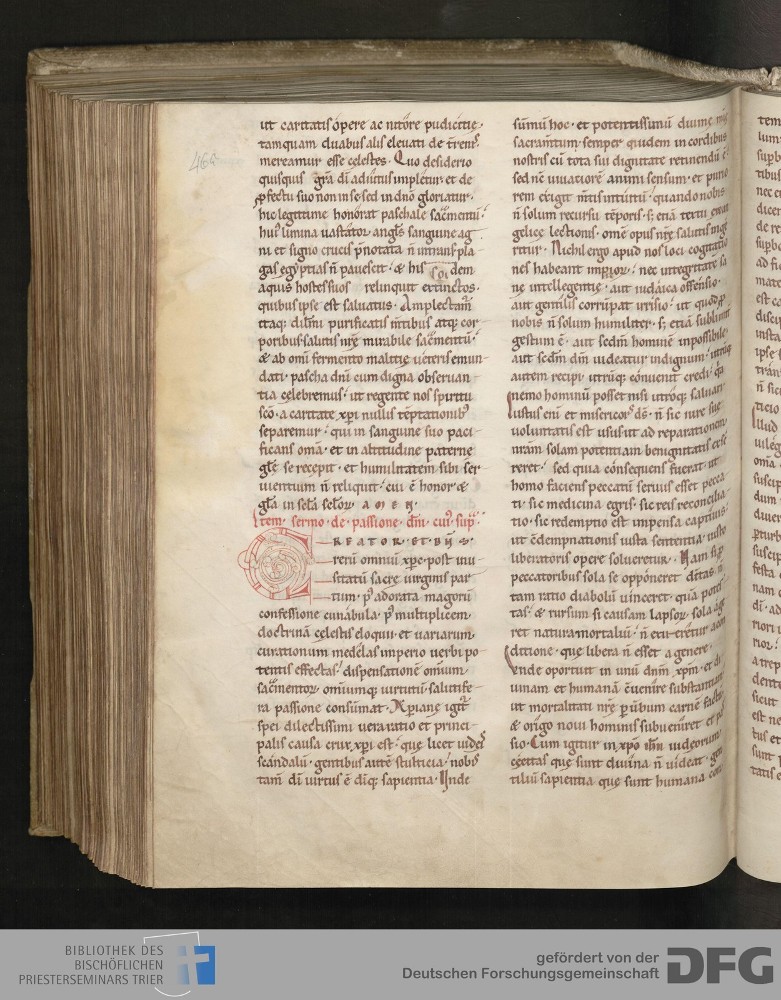 ut caritatis opere ac nitore pudicitię.
tamquam duabus alis eleuati de t̄renis
mereamur esse cęlestes. Quo desiderio
quisquis gr̄a dī adiutus impletur. et de
ꝓfectu suo non in se sed in dn̄o gloriatur.
hic legittime honorat paschale sac̄mentū.
hui' limina uastator angl̄s sanguine ag
ni et signo crucis p̄notata n̄ intrauit. pla
gas egyptias n̄ pauescit. & his dem
aquis hostes suos relinquit extinctos.
quibus ipse est saluatus. Amplectam̄
itaq; dilm̄i purificatis m̄tibus atq; cor
poribus salutis nr̄ę mirabile sac̄mentū.
& ab omī fermento malitię ueteris emun
dati. pascha dnī cum digna obseruan
tia celebremus. ut regente nos spiritu
sc̄o. a caritate xp̄i nullis tēptationib;
separemur. qui in sanguine suo paci
ficans omīa. et in altitudinē paternę
gl̄ę se recepit. et humilitatem sibi ser
uientium n̄ reliquit. cui ē honor &
gl̄a in sc̄la sc̄lor. AMEN.
Item sermo de passione dn̄i. cui' sup̄.
CREATOR. ET. DN̄S.
rerū omniū xp̄c. post inu
sitatū sacrę uirginis par
tum. p' adorata magorū
confessione cunabula. p' multiplicem
doctrinā cęlestis eloquii. et uariarum
curationum medelas imperio uerbi po
tentis effectas. dispensationē omium
sac̄mentor. omiumq; uirtutū salutife
ra passione consūmat. Xp̄ianę igit̄
spei dilectissimi uera ratio et princi
palis causa crux xp̄i est. quę licet iudeis
scandalū. gentibus autē stulticia. nobis
tam̄ dī uirtus ē dīq; sapientia. Unde
sūmū hoc. et potentissimū diuinę
sacramtum semper quidem in cordibus
nostris cū tota sui dignitate retinendū ē.
sed nc̄ uiuaciorē animi sensum. et purio
rem exigit m̄tis intuitū. quando nobis
n̄ solum recursu tēporis. s; etiā textu euan
gelicę lectionis. omē opus nr̄ę salutis inge
ritur. Nichil ergo apud nos loci cogitatio
nes habeant impior. nec integritatē sa
nę intellegentię. aut iudaica offensio.
aut gentilis corrūpat irrisio. ut quod ꝓ
nobis n̄ solum humiliter. s; etiā sublimit̄
gestum ē. aut scdm̄ hominē inpossibile.
aut scdm̄ dm̄ uideatur indignum. utrūq;
autem recipi. utrūq; conuenit credi. q̄a
nemo hominū posset nisi utroq; saluari.
Iustus enī et misericors ds̄. n̄ sic iure suę
uoluntatis est usus. ut ad reparationem
nr̄am solam potentiam benignitatis exse
reret. sed quia consequens fuerat. ut
homo faciens peccatū seruus esset pecca
ti. sic medicina egris. sic reis reconcilia
tio. sic redemptio est impensa captiuis.
ut cōdempnationis iusta sententia. iusto
liberatoris opere solueretur. Nam si ꝓ
peccatoribus sola se opponeret deitas. n̄
tam ratio diabolū uinceret. quā potes
tas. & rursum si causam lapsor. sola age
ret natura mortaliū. n̄ exueretur a con
ditione. quę libera n̄ esset a genere.
Unde oportuit in unū dnm̄ xp̄m. et di
uinam et humanā cuenire substantiam.
ut mortalitati nr̄ę p uerbum carnē factū
& origo noui hominis subueniret et pas
sio. Cum igitur in xp̄o ihū iudeorum
cęcitas quę sunt diuina n̄ uideat. gen
tiliū sapientia quę sunt humana con
BIBLIOTHEK DES
BISCHÖFLICHEN
PRIESTERSEMINARS TRIER
gefördert von der
Deutschen Forschungsgemeinschaft
DFG